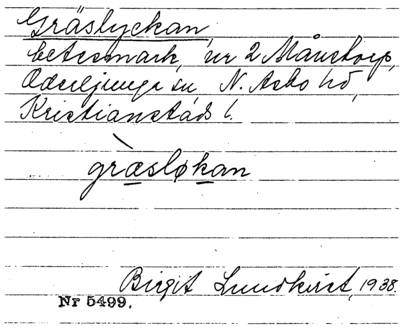 Gräslyckan,
betesmark, ur 2 Månstorp,
Oderljunga sn N. Åsbo hd,
Kristianstads l.
gr̀æsløkan
Birgit Lundkvist, 1938.
Nr 5499.